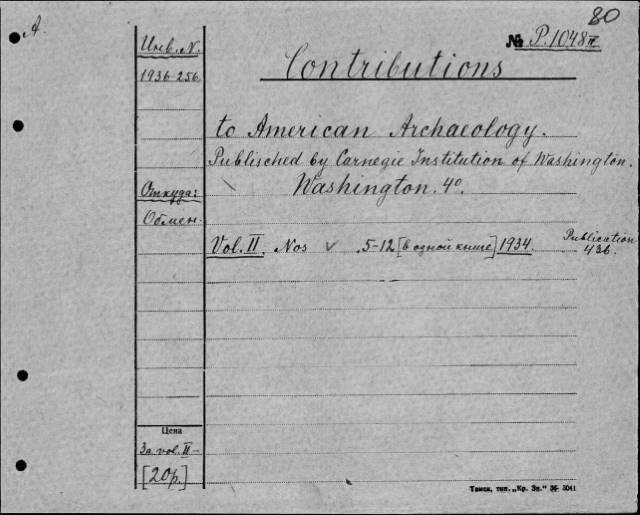 80
A.
Инв. N.
№ P.1048 II
1936-256.
Contributions
to American Archaeology.
Publisched by Carnegie Institution of Washington.
Откуда:
Washington. 4°.
Обмен.
Vol. II. Nos v 5-12 [в одной книге] 1934. Publication 436.
Цена
За vol. II -
[20р.]
Томск, тип. „Кр. Зн.“ 3041